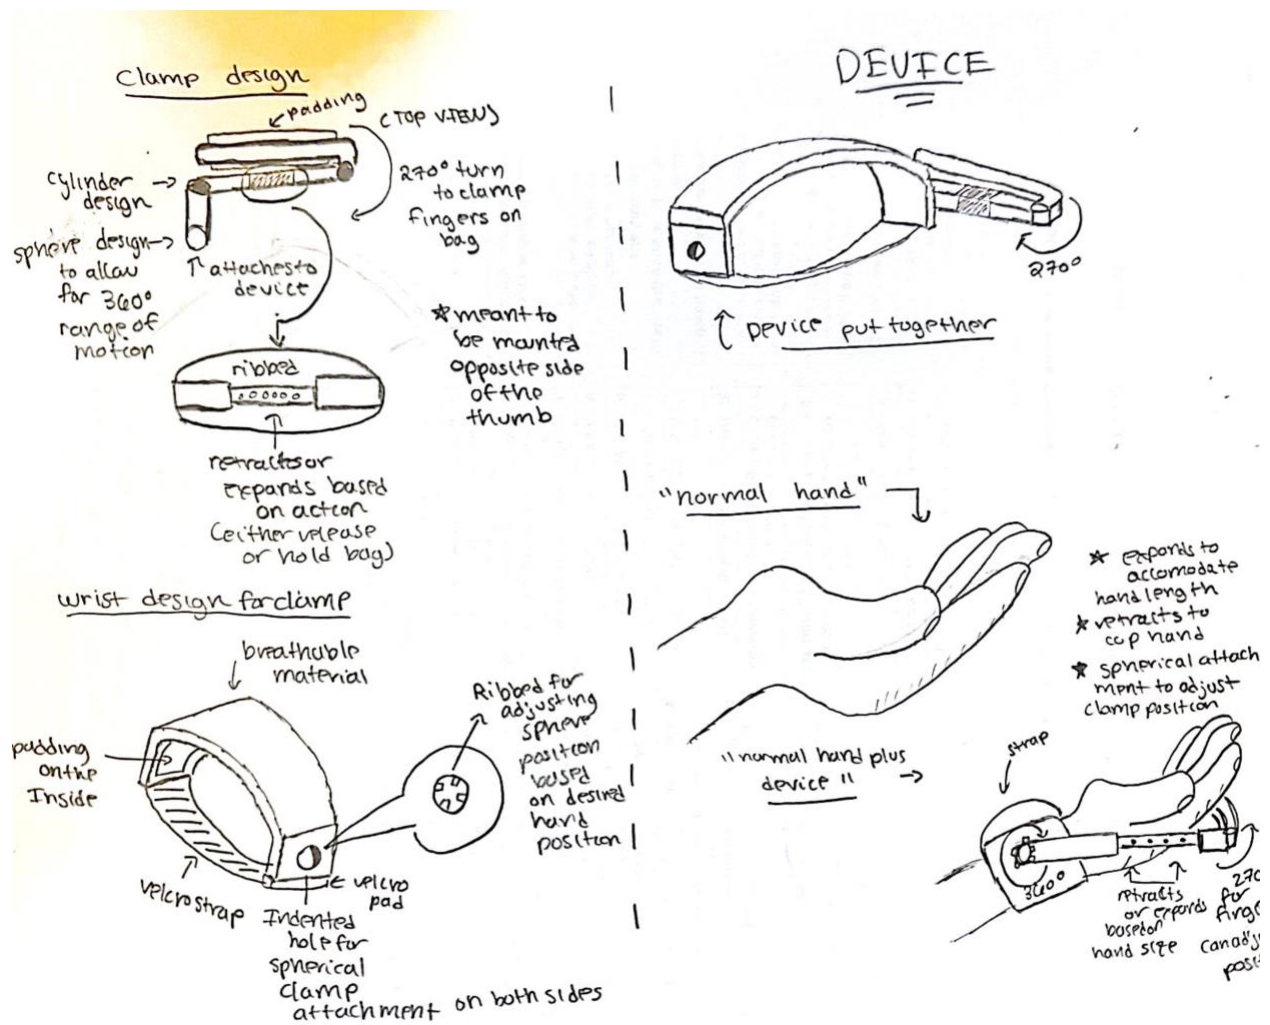 Clamp design
padding
(TOP VIEW)
cylinder
design
270° turn
to clamp
fingers on
bag
sphere design
to allow
for 360°
range of
motion
attaches to
device
* meant to
be mounted
opposite side
of the
thumb
ribbed
retracts or
expands based
on action
(either release
or hold bag)
wrist design for clamp
breathable
material
padding
on the
Inside
Ribbed for
adjusting
sphere
position
based
on desired
hand
position
velcro strap
velcro
pad
Indented
hole for
spherical
clamp
attachment on both sides
DEVICE
270°
Device put together
"normal hand"
* expands to
accomodate
hand length
* retracts to
cup hand
* spherical attach
ment to adjust
clamp position
"normal hand plus
device"
strap
360°
retracts
or expands
based on
hand size
270
for
fing
can adj
posi